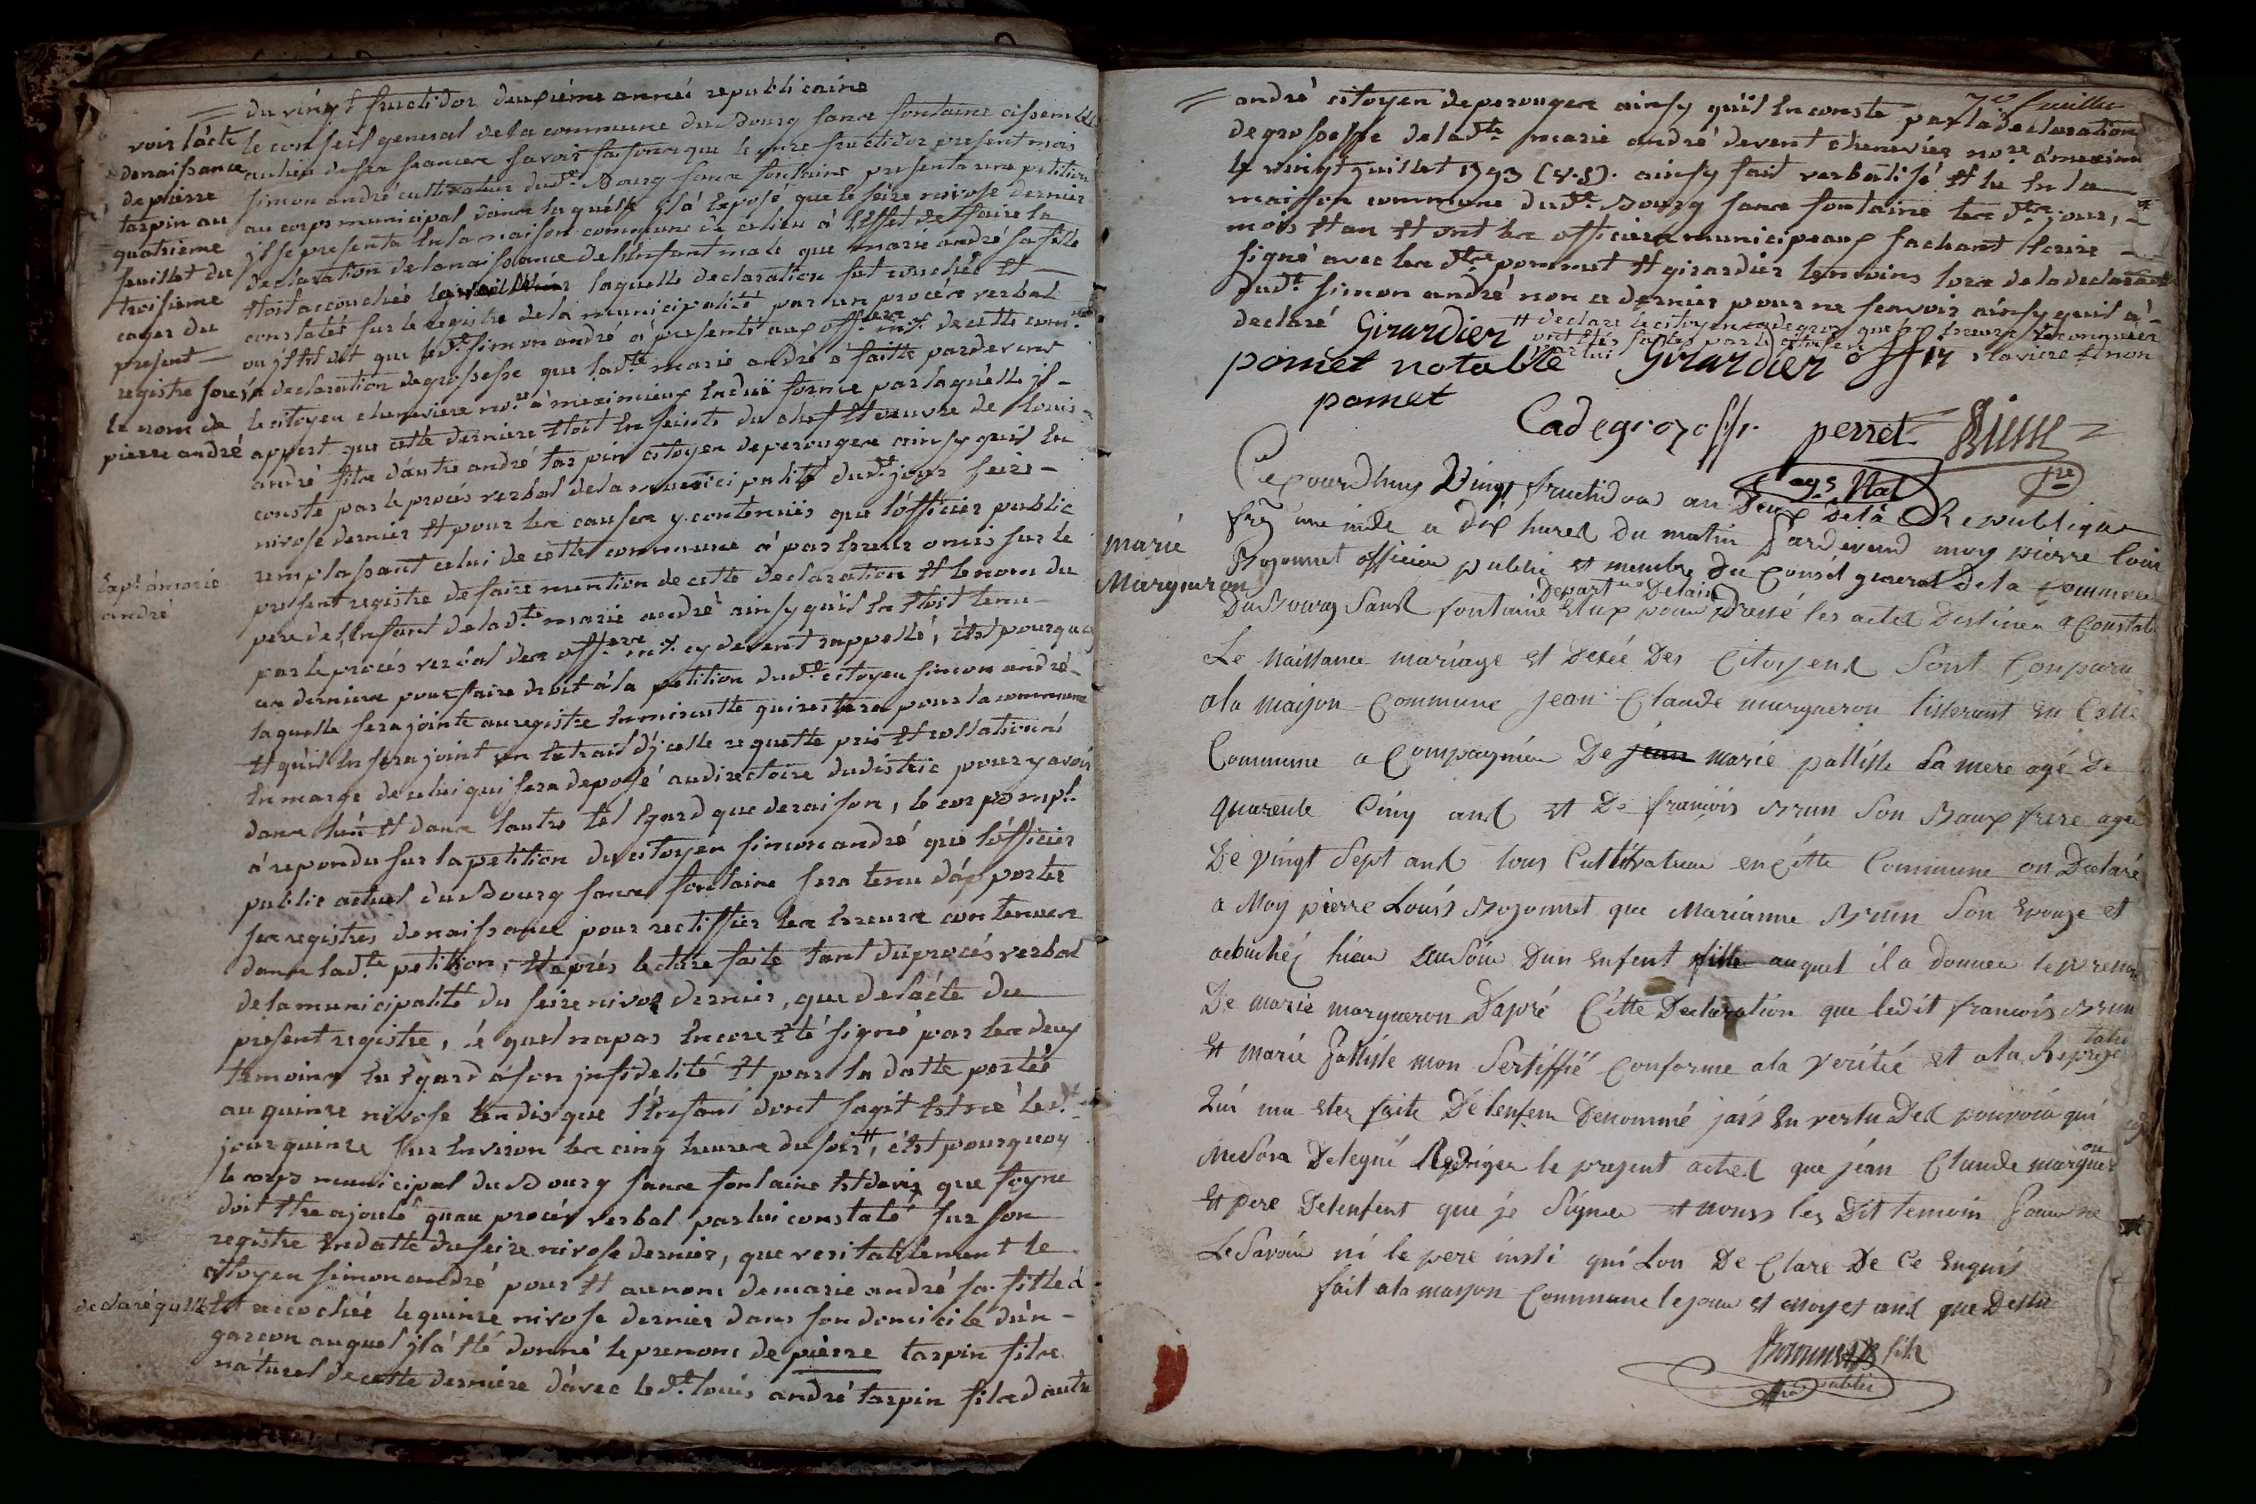 du vingt fructidor deuxiéme anneé republicaine
voir lácte
denaissance
de pierre
tarpin au
quatriéme
feuillet du
troisieme
cayer du
present
registre sous
le nom de
pierre andré
le conseil general dela commune du Bourg sance fontaine assemblé
aulieu deses seancea savoir faisonsque le onze fructidor present mois
simon andré cultivateur dudt. Bourg sance fontaine presenta une petition
au corps municipal dance laquélle jl á Exposé que le seize nivose dernier
jl se presenta En la maison commune de ce lieu á l'Effet de faire la
declaration delanaissance de l'Enfant male que marie andré sa fille
Etoit accouchée laquelle declaration fut couchée Et
constatée sur le registre dela municipalité par un procéx verbal
ou jl Est dit que ledt. simon andré á presenté aux offera. mx. decette comune
la declaration degrossesse que ladte. marie andré á faitte pardevant
le citoyen cheneviere nore. á meximieux Enduë forme parlaquélle jl
appert que cette derniere Etoit Enseinte du chef Et oeuvre de louis
andré filx dáutre andré tarpin citoyen deperougex ainsy quil En
conste par le procés verbal dela municipalité dudt. jour seize
nivose dernier Et pour lex causex y contenuës que lófficier public
remplassant celui de cette commune á par Erreur omis sur le
present registre de faire mention de cette declaration Et le nom du
pere de l'Enfant deladte marie andré ainsy quíl En Etoit tenu
par le procés verbal dex offera. mx. cy devent rappellé, c'Est pourquoy
ce dernier pour faire droit á la petition dudt. citoyen simon andré
laquelle sera jointe au registre En minutte qui restera pour la commune
Et quíl En sera joint un Extrait d'jcelle requette pris Et collationné
En marge de celui qui sera deposé audirectoire dudistric pour y avoir
dance lún Et dance lautre tel Egard que deraison, le corps mpl.
á repondu sur la petition du citoyen simon andré que lófficier
public actuel du Bourg sance fontaine sera tenu dápporter
sex registres denaissance pour rectiffier lex Erreurx contenuex
dance ladte. petition, Et aprés lecture faite tant du procés verbal
delamunicipalité du seize nivose dernier, que delácte du
present registre, le quel na pas Encore Eté signé par lex deux
temoinx En Egard á son jnfidelité Et par la datte portée
au quinze nivose tandis que l'Enfant dont sagit Est né ledt.
jour quinze sur Environ lex cinq heurex du soir, c'Est pourquoy
le corps municipal du Bourg sance fontaine Est davis que foyne
doit Etre ajouté quau procés verbal par lui constaté sur son
registre En datte du seize nivose dernier, que veritablement le
citoyen simon andré pour Et au nom de marie andré sa fille á
declaré quélle
Est accochée le quinze nivose dernier dans son domicile dún
garcon auquel jl á Eté donné le prenom de pierre tarpin filx
náturel decette derniere dávec ledt. louis andré tarpin filx dautre
andré
70 feuillet
andré citoyen deperougex ainsy quíl En conste par la declaration
degrossesse deladte marie andré devent chenevier nore. á meximieux
le vingt juillet 1793 (v.s). ainsy fait verbalisé Et lu En la
maison commune dudt. Bourg sance fontaine lex dt. jour,
mois Et an Et ont lex officierx municipaux sachant Ecrire
signé avec lex dts pommet Et girardier temoins lorx dela declaration
dudt. simon andré non ce dernier pour ne scavoir ainsy quil á
declaré
Girardier
pomet notable
Girardier off
pomet
Cadegros off. perret Brun
ags Nat
marie
Marguron
Cejourdhuy Vingt fructidor an Deux De la Republique
une indivisible a dix hured du matin Pardevend moy pierre Louis
Bozonnet officier public et membre du Conseil general De la Commune
Du Bourg Sand fontaine Departement Delain Elus pour Dressé les acted Destinee a Constaté
Le Naissance mariage et Decée Des Citoyend Sont Conparu
a la maison Commune jean Claude margueron tisserant En Cette
Commune a Compagnée De marie pallisse Sa mere agé De
quarente Cinq and et De francois Brun Son Baux frere agé
De vingt Sept and tous Cultivateur en Cétte Commune on Declaré
a Moy pierre Louis Bozonnet que Marianne Brun Son Epouze et
acouchéj hier auSoir Dun Enfent auquel il a donnee le prenom
De marie margueron Dapré Cétte Declaration que ledit francois Brun
Et marie Pallisse mon Sertiffié Conforme ala Verité et ala Represen
tation
Qui ma etez faite De lenfen Denommé jais En vertu Ded pouvoir qui
MeSon Delegué Redriger le present acted que jean Claude margueron
Et pere Delenfent que je Signer et nonss les Dit temoin Pour ne
Le Savoir ni le pere insti qui Lon De Clare De Ce Enquis
fait ala mayson Commune lejour et moyet and que Dessu
Bozonnet fils
public